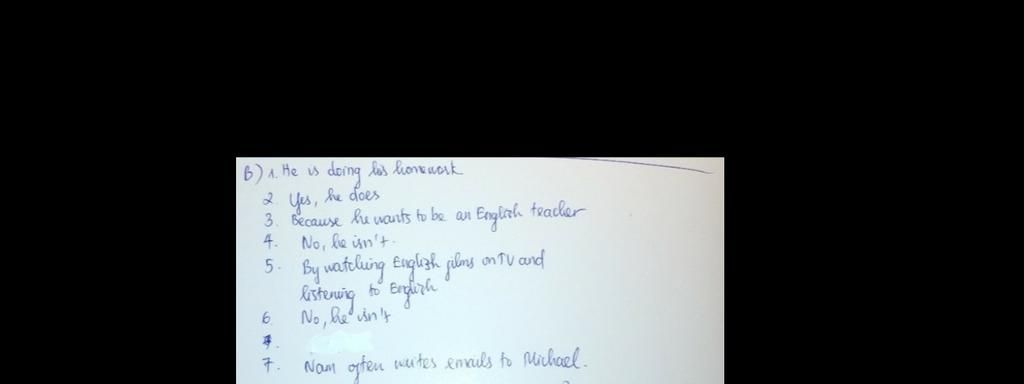 B) 1. He is doing his homework
2. Yes, he does
3. Because he wants to be an English teacher
4. No, he isn't.
5. By watching English films on TV and
listening to English
6. No, he isn't
7. Nam often writes emails to Michael.